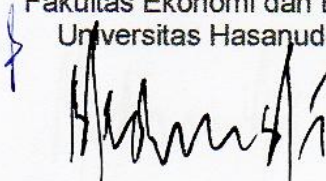 Fakultas Ekonomi dan
Universitas Hasanud